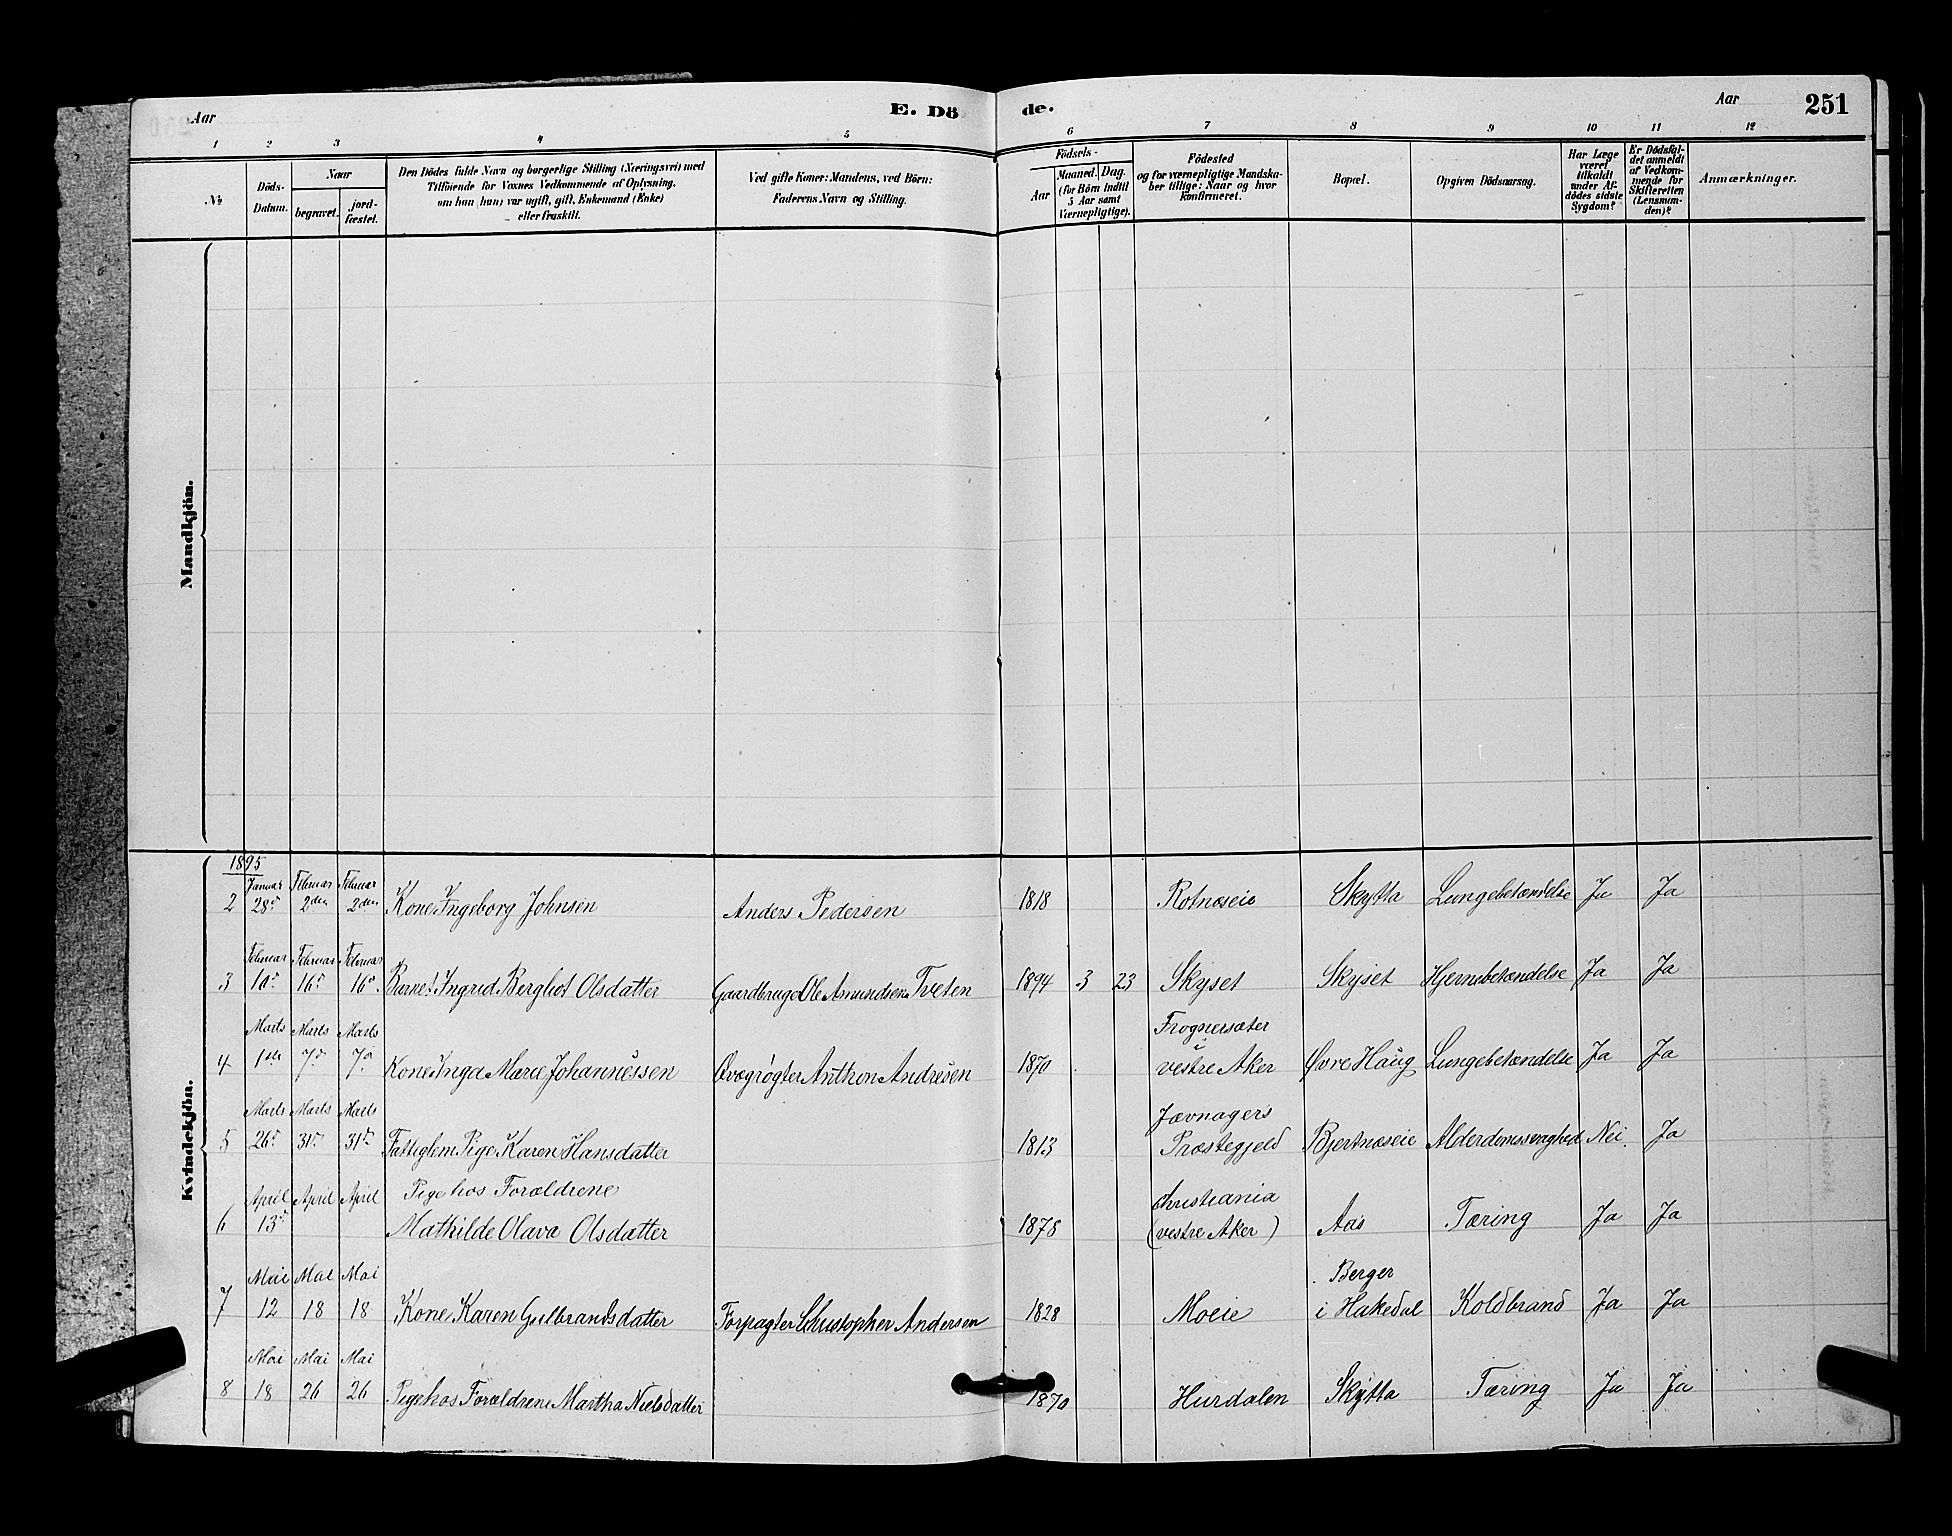 Aar
E. Dö
de.
Aar
251
1 2 3 4 5 6 7 8 9 10 11 12
№
Döds-
Datum.
Naar
begravet.
jord-
fæstet.
Den Dödes fulde Navn og borgerlige Stilling (Næringsvei) med
Tilföiende for Voxnes Vedkommende af Oplysning,
om han (hun) var ugift, gift, Enkemand (Enke)
eller fraskilt.
Ved gifte Koner: Mandens, ved Börn:
Faderens Navn og Stilling.
Födsels-
Aar
Maaned. Dag.
(for Börn indtil
5 Aar samt
Værnepligtige).
Födested
og for værnepligtige Mandska-
ber tillige: Naar og hvor
konfirmeret.
Bopæl.
Opgiven Dödsaarsag.
Har Læge
været
tilkaldt
under Af-
dödes sidste
Sygdom?
Er Dödsfal-
det anmeldt
af Vedkom-
mende for
Skifteretten
(Lensman-
den)?
Anmærkninger.
Mandkjön.
Kvindekjön.
1895
Januar Februar Februar
2 28d 2den 2den Kone Ingeborg Johnsen Anders Pedersen 1818 Rotnæseie Skytta Lungebetændelse Ja Ja
Februar Februar Februar
3 10d 16d 16d. Barnet Ingrid Berghot Olsdatter Gaardbruger Ole Amundsen Tveten 1894 3 23 Skyset Skyset Hjernebetændelse Ja Ja
Marts Marts Marts Frognersæter
4 1ste 7d 7d Kone Inga Marie Johannessen Qvægrøgter Anthon Andresen 1870 vestre Aker Øvre Haug Lungebetændelse Ja Ja
Marts Marts Marts Jævnagers
5 26d 31te 31te Fattiglem Pige Karen Hansdatter 1813 Præstegjeld Bjertnæseie Alderdomssvaghed Nei. Ja
April April April Pige hos Forældrene Christiania
6 13d Mathilde Olava Olsdatter 1878 (vestre Aker) Aas Tæring Ja Ja
Mai Mai Mai Berger
7 12 18 18 Kone Karen Gulbrandsdatter Forpagter Christopher Andersen 1828 Moeie i Hakedal Koldbrand Ja Ja
Mai Mai Mai
8 18 26 26 Pige hos Forældrene Martha Nielsdatter 1870 Hurdalen Skytta Tæring Ja Ja